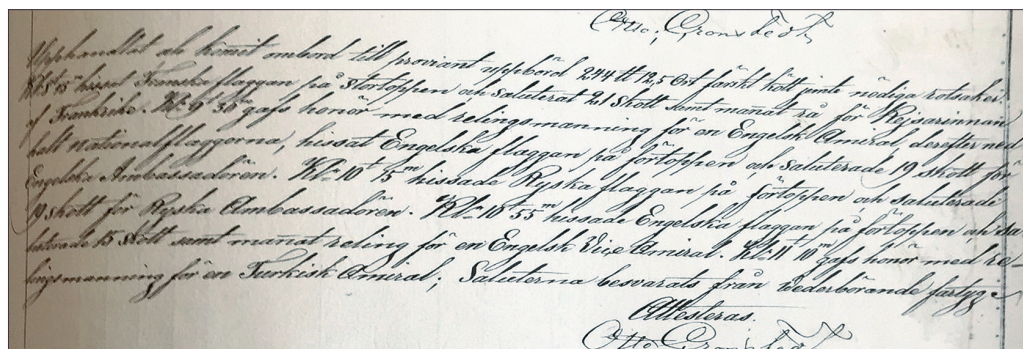 Otto, Cronstedt
Upphandlat och kommit ombord till proviant uppbörd 244 tt 12,5 ort färskt kött jemte nödiga rotsaker.
Kl. 8 15m hissat Franska flaggan på Stortoppen och saluterat 21 skott samt mannat rå för Kejsarinnan
af Frankrike. Kl. 9 30m gafs honör med relingsmanning för en Engelsk Amiral, derefter ned
halt nationalflaggorna, hissat Engelska flaggan på förtoppen och saluterade 19 skott för
Engelska Ambassadören. Kl. 10t 15m hissade Ryska flaggan på förtoppen och saluterade
19 skott för Ryska Ambassadören. Kl. 10t 55m hissade Engelska flaggan på förtoppen och sa
luterade 15 skott samt mannat reling för en Engelsk Vice Amiral. Kl. 11t 10m gafs honör med re-
lingsmanning för en Turkisk Amiral; Saluterna besvarats från vederbörande fartyg.
Attesteras.
Otto Cronstedt